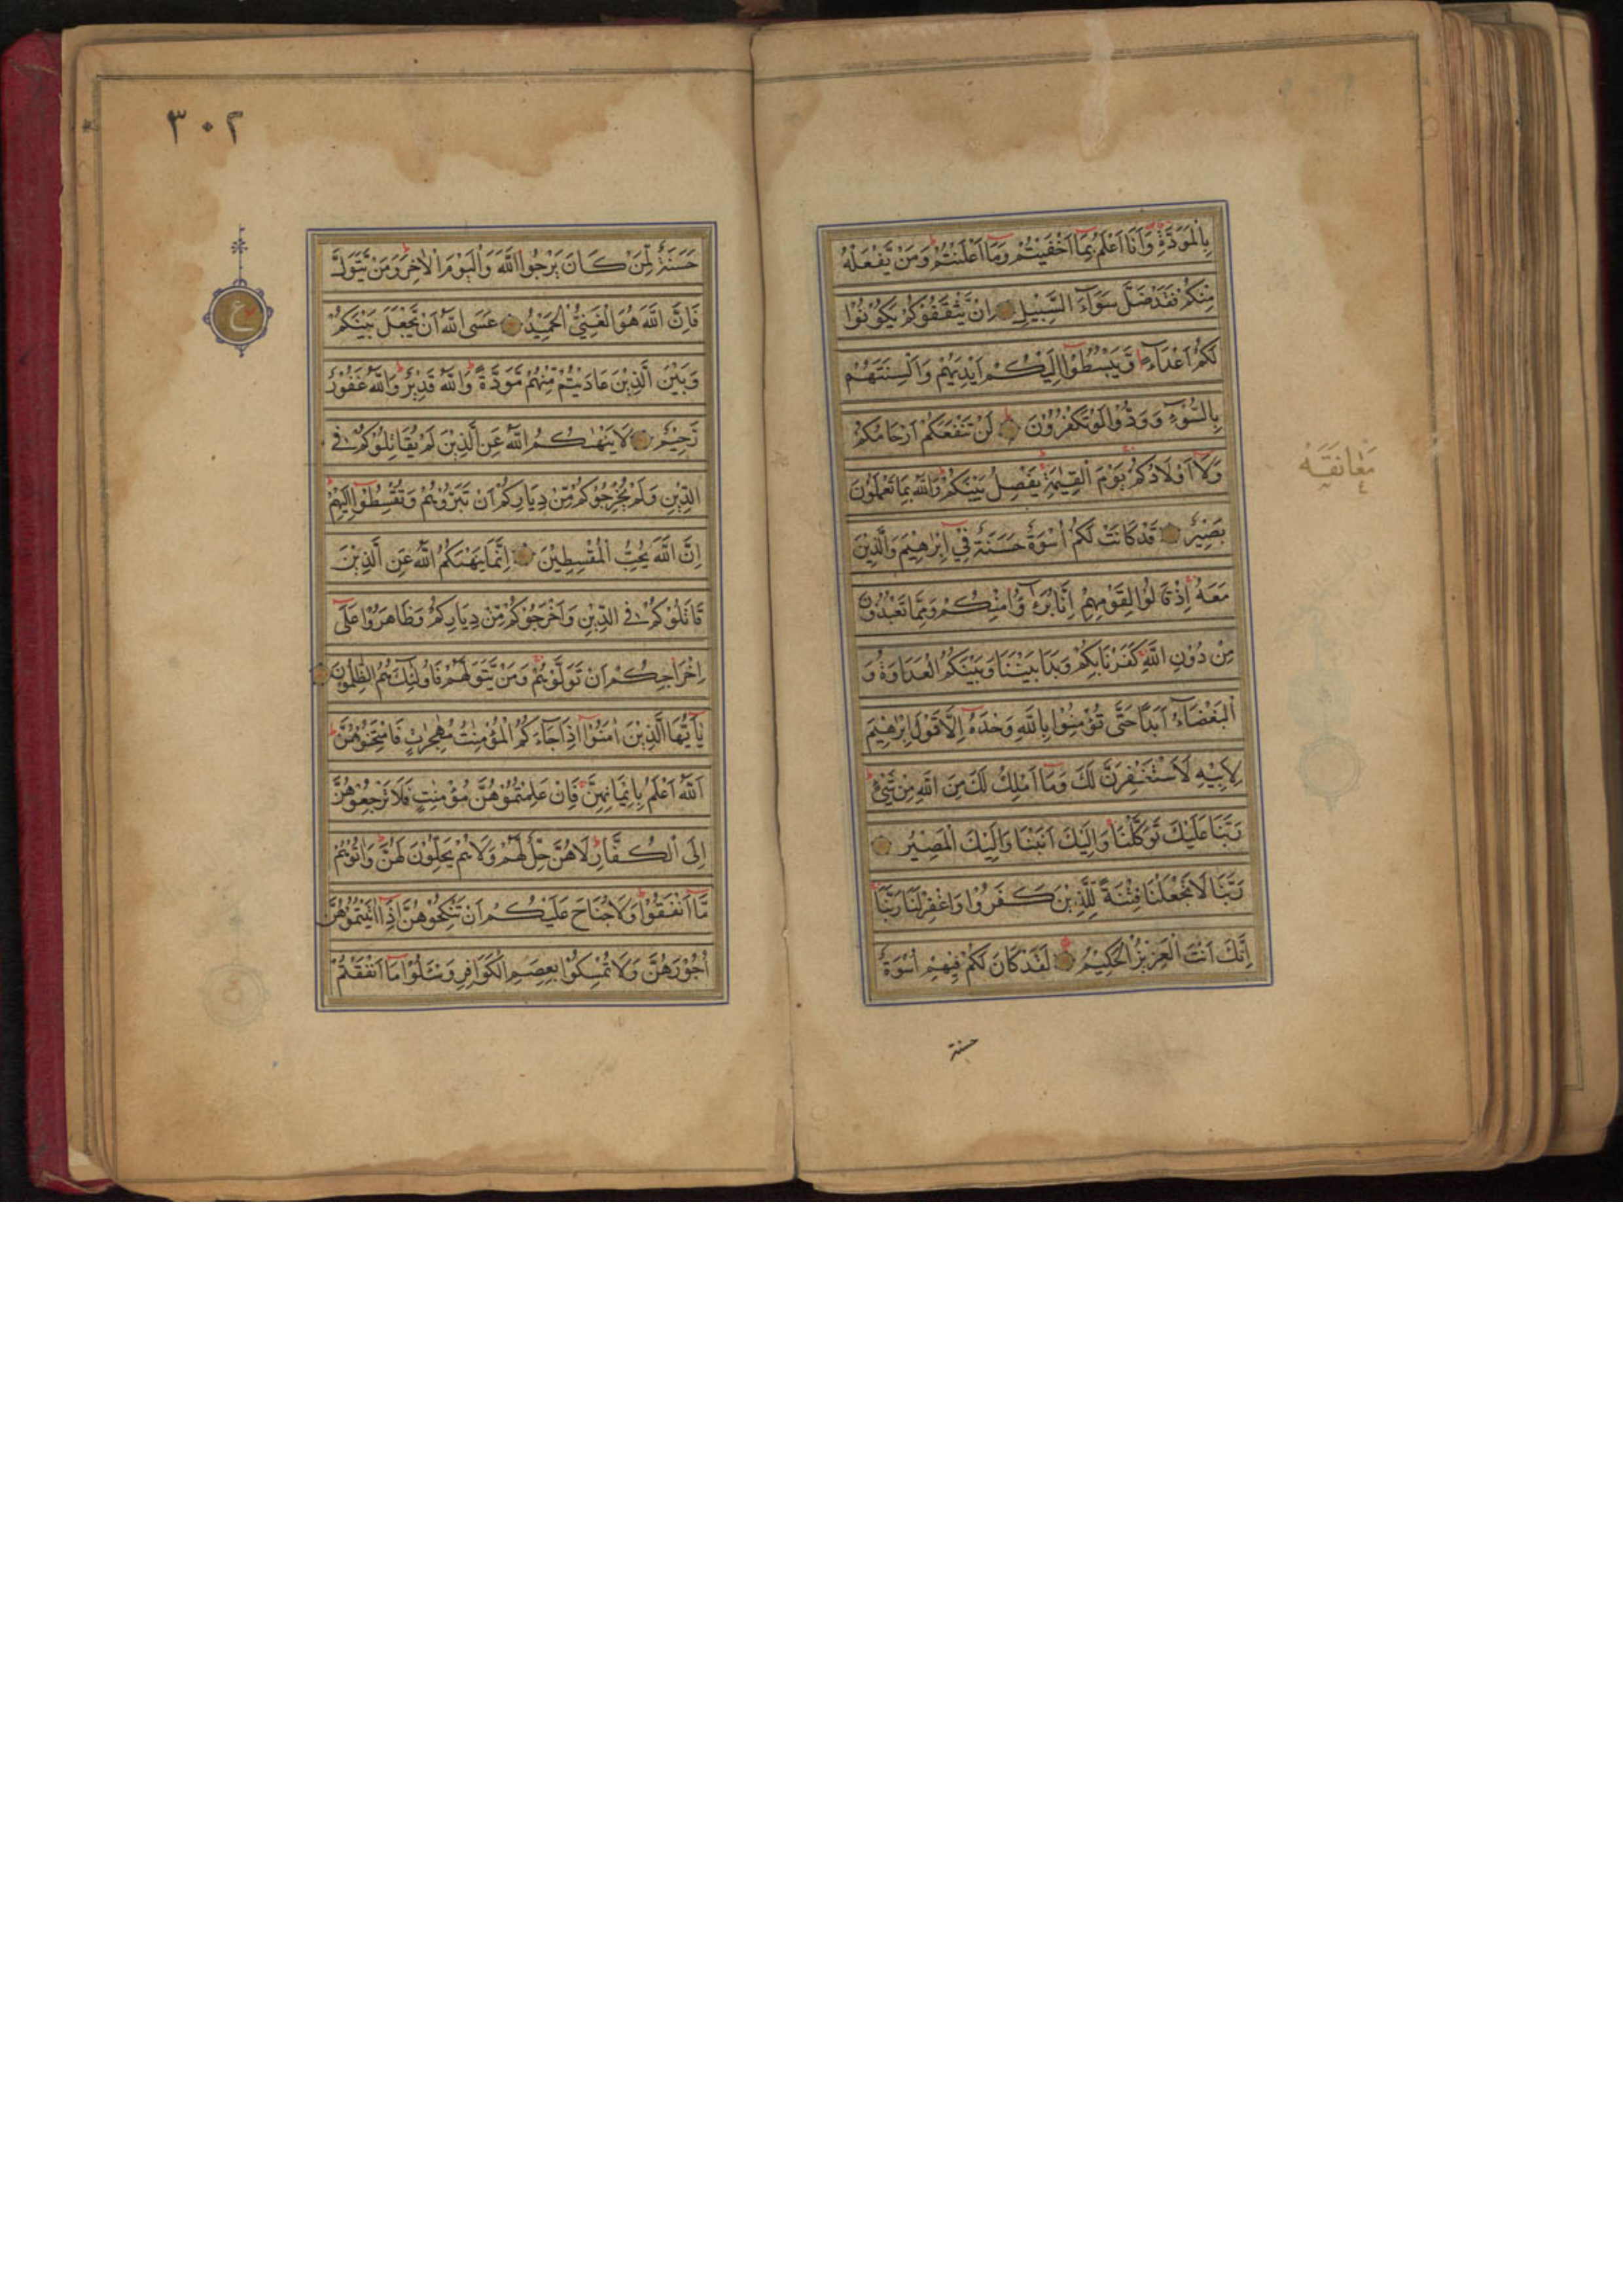 بِالْمَوَدَّةِ وَاَنَا اَعْلَمُ بِمَا اَخْفَيْتُمْ وَمَا اَعْلَنْتُمْ وَمَنْ يَّفْعَلْهُ
مِنْكُمْ فَقَدْ ضَلَّ سَوَآءَ السَّبِيْلِ اِنْ يَّثْقَفُوْكُمْ يَكُوْنُوْا
لَكُمْ اَعْدَآءً وَّيَبْسُطُوْٓا اِلَيْكُمْ اَيْدِيَهُمْ وَاَلْسِنَتَهُمْ
بِالسُّوْٓءِ وَوَدُّوْا لَوْ تَكْفُرُوْنَ لَنْ تَنْفَعَكُمْ اَرْحَامُكُمْ
وَلَآ اَوْلَادُكُمْ يَوْمَ الْقِيٰمَةِ يَفْصِلُ بَيْنَكُمْ وَاللّٰهُ بِمَا تَعْمَلُوْنَ
بَصِيْرٌ قَدْ كَانَتْ لَكُمْ اُسْوَةٌ حَسَنَةٌ فِيْٓ اِبْرٰهِيْمَ وَالَّذِيْنَ
مَعَهٗ اِذْ قَالُوْا لِقَوْمِهِمْ اِنَّا بُرَءٰٓؤُا مِنْكُمْ وَمِمَّا تَعْبُدُوْنَ
مِنْ دُوْنِ اللّٰهِ كَفَرْنَا بِكُمْ وَبَدَا بَيْنَنَا وَبَيْنَكُمُ الْعَدَاوَةُ وَ
الْبَغْضَآءُ اَبَدًا حَتّٰى تُؤْمِنُوْا بِاللّٰهِ وَحْدَهٗٓ اِلَّا قَوْلَ اِبْرٰهِيْمَ
لِاَبِيْهِ لَاَسْتَغْفِرَنَّ لَكَ وَمَآ اَمْلِكُ لَكَ مِنَ اللّٰهِ مِنْ شَيْءٍ
رَبَّنَا عَلَيْكَ تَوَكَّلْنَا وَاِلَيْكَ اَنَبْنَا وَاِلَيْكَ الْمَصِيْرُ
رَبَّنَا لَا تَجْعَلْنَا فِتْنَةً لِّلَّذِيْنَ كَفَرُوْا وَاغْفِرْ لَنَا رَبَّنَا
اِنَّكَ اَنْتَ الْعَزِيْزُ الْحَكِيْمُ لَقَدْ كَانَ لَكُمْ فِيْهِمْ اُسْوَةٌ
حسنة
معانقه
٣٠٢
حَسَنَةٌ لِّمَنْ كَانَ يَرْجُوا اللّٰهَ وَالْيَوْمَ الْاٰخِرَ وَمَنْ يَّتَوَلَّ
فَاِنَّ اللّٰهَ هُوَ الْغَنِيُّ الْحَمِيْدُ عَسَى اللّٰهُ اَنْ يَّجْعَلَ بَيْنَكُمْ
وَبَيْنَ الَّذِيْنَ عَادَيْتُمْ مِّنْهُمْ مَّوَدَّةً وَاللّٰهُ قَدِيْرٌ وَاللّٰهُ غَفُوْرٌ
رَّحِيْمٌ لَا يَنْهٰىكُمُ اللّٰهُ عَنِ الَّذِيْنَ لَمْ يُقَاتِلُوْكُمْ فِي
الدِّيْنِ وَلَمْ يُخْرِجُوْكُمْ مِّنْ دِيَارِكُمْ اَنْ تَبَرُّوْهُمْ وَتُقْسِطُوْٓا اِلَيْهِمْ
اِنَّ اللّٰهَ يُحِبُّ الْمُقْسِطِيْنَ اِنَّمَا يَنْهٰىكُمُ اللّٰهُ عَنِ الَّذِيْنَ
قَاتَلُوْكُمْ فِي الدِّيْنِ وَاَخْرَجُوْكُمْ مِّنْ دِيَارِكُمْ وَظَاهَرُوْا عَلٰٓى
اِخْرَاجِكُمْ اَنْ تَوَلَّوْهُمْ وَمَنْ يَّتَوَلَّهُمْ فَاُولٰٓئِكَ هُمُ الظّٰلِمُوْنَ
يٰٓاَيُّهَا الَّذِيْنَ اٰمَنُوْٓا اِذَا جَآءَكُمُ الْمُؤْمِنٰتُ مُهٰجِرٰتٍ فَامْتَحِنُوْهُنَّ
اَللّٰهُ اَعْلَمُ بِاِيْمَانِهِنَّ فَاِنْ عَلِمْتُمُوْهُنَّ مُؤْمِنٰتٍ فَلَا تَرْجِعُوْهُنَّ
اِلَى الْكُفَّارِ لَا هُنَّ حِلٌّ لَّهُمْ وَلَا هُمْ يَحِلُّوْنَ لَهُنَّ وَاٰتُوْهُمْ
مَّآ اَنْفَقُوْا وَلَا جُنَاحَ عَلَيْكُمْ اَنْ تَنْكِحُوْهُنَّ اِذَآ اٰتَيْتُمُوْهُنَّ
اُجُوْرَهُنَّ وَلَا تُمْسِكُوْا بِعِصَمِ الْكَوَافِرِ وَسْـَٔلُوْا مَآ اَنْفَقْتُمْ
ع